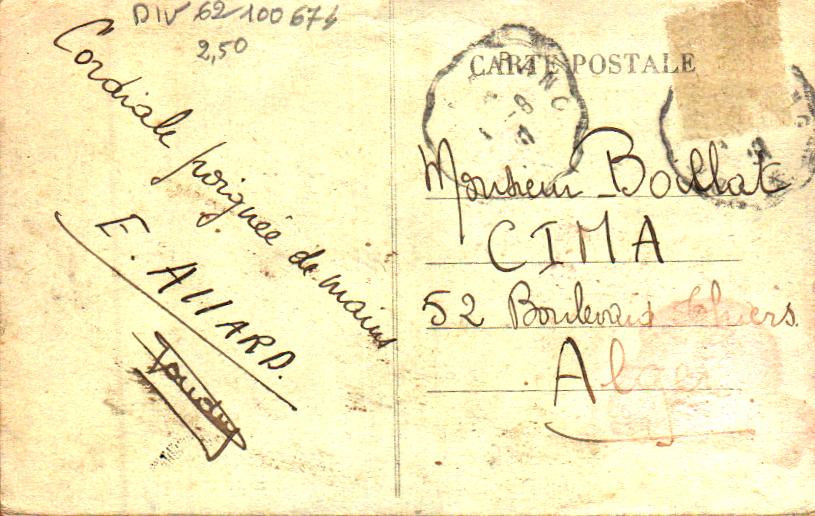 DIV 62-100674
2,50
Cordiale poignée de mains
E. AllARD.
CARTE POSTALE
Monsieur Boillat
CIMA
52 Boulevard Thiers.
Alger